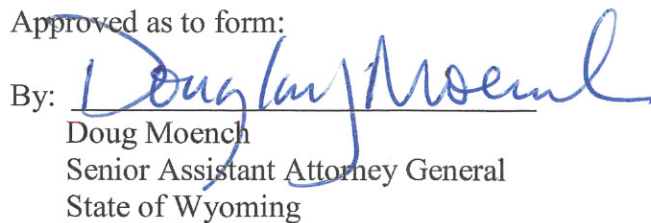 Approved as to form:
By: Douglas Moench
Doug Moench
Senior Assistant Attorney General
State of Wyoming